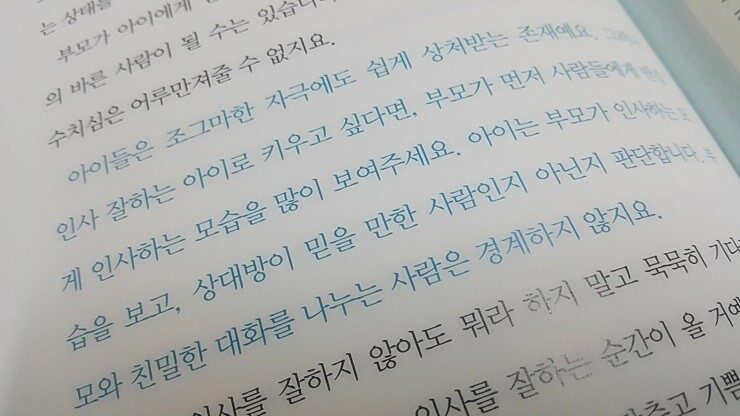 는 상태를
부모가 아이에게
의 바른 사람이 될 수는 있습니
수치심은 어루만져줄 수 없지요.
아이들은 조그마한 자극에도 쉽게 상처받는 존재예요.
인사 잘하는 아이로 키우고 싶다면, 부모가 먼저 사람들에게
게 인사하는 모습을 많이 보여주세요. 아이는 부모가 인사하는 모
습을 보고, 상대방이 믿을 만한 사람인지 아닌지 판단합니다. 부
모와 친밀한 대화를 나누는 사람은 경계하지 않지요.
잘하지 않아도 뭐라 하지 말고 묵묵히 기다
인사를 잘하는 순간이 올 거예
기쁨